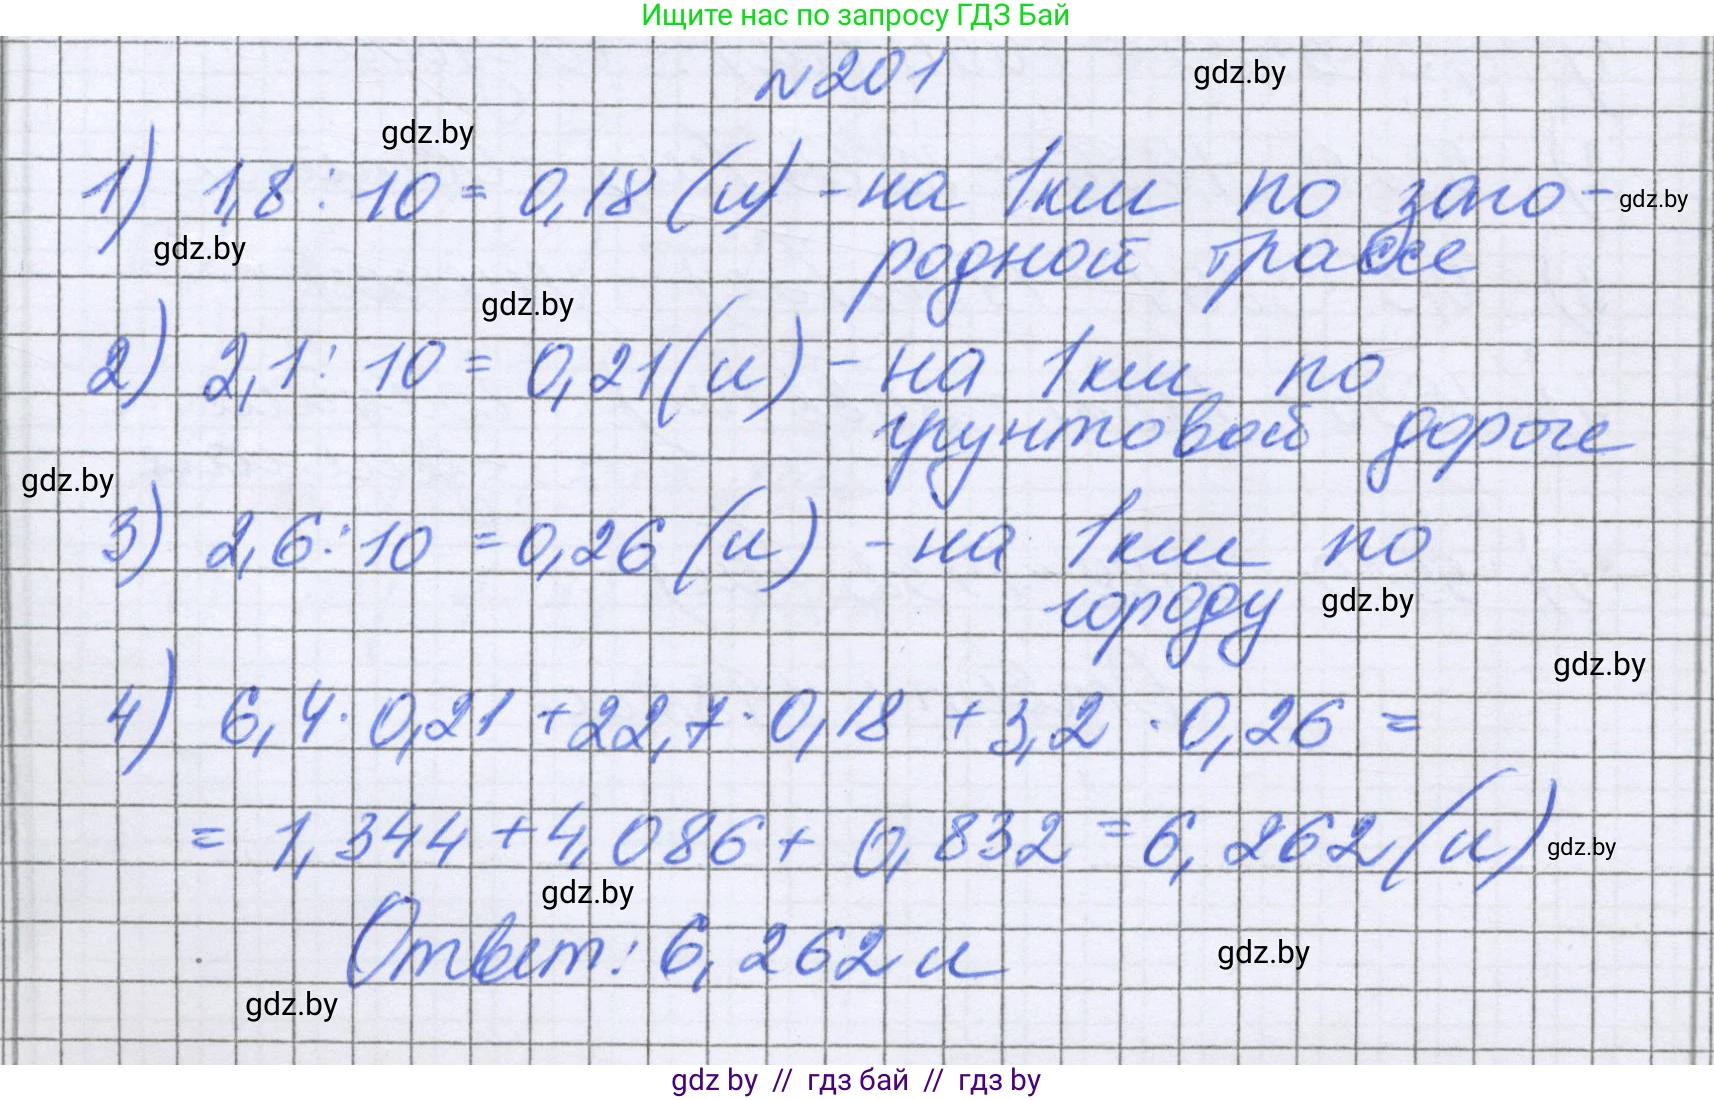 Ищите нас по запросу ГДЗ Бай
N201
gdz.by
gdz.by
1) 1,8 : 10 = 0,18 (л) - на 1км по заго-
gdz.by
gdz.by
родной трассе
gdz.by
2) 2,1 : 10 = 0,21 (л) - на 1км по
грунтовой дороге
gdz.by
3) 2,6 : 10 = 0,26 (л) - на 1км по
городу
gdz.by
gdz.by
4) 6,4 · 0,21 + 22,7 · 0,18 + 3,2 · 0,26 =
= 1,344 + 4,086 + 0,832 = 6,262 (л)
gdz.by
gdz.by
Ответ: 6,262 л
gdz.by
gdz.by
gdz by // гдз бай // гдз by